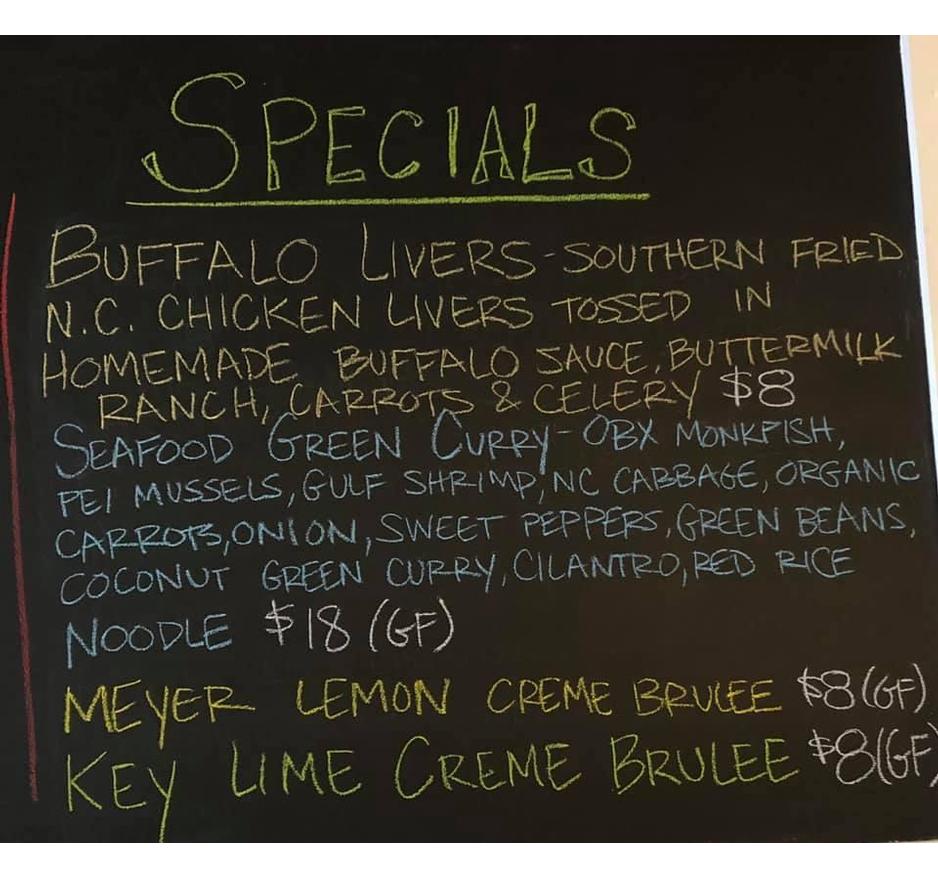 SPECIALS
BUFFALO LIVERS - SOUTHERN FRIED
N.C. CHICKEN LIVERS TOSSED IN
HOMEMADE BUFFALO SAUCE, BUTTERMILK
RANCH, CARROTS & CELERY $8
SEAFOOD GREEN CURRY - OBX MONKFISH,
PEI MUSSELS, GULF SHRIMP, NC CABBAGE, ORGANIC
CARROTS, ONION, SWEET PEPPERS, GREEN BEANS,
COCONUT GREEN CURRY, CILANTRO, RED RICE
NOODLE $18 (GF)
MEYER LEMON CREME BRULEE $8 (GF)
KEY LIME CREME BRULEE $8 (GF)